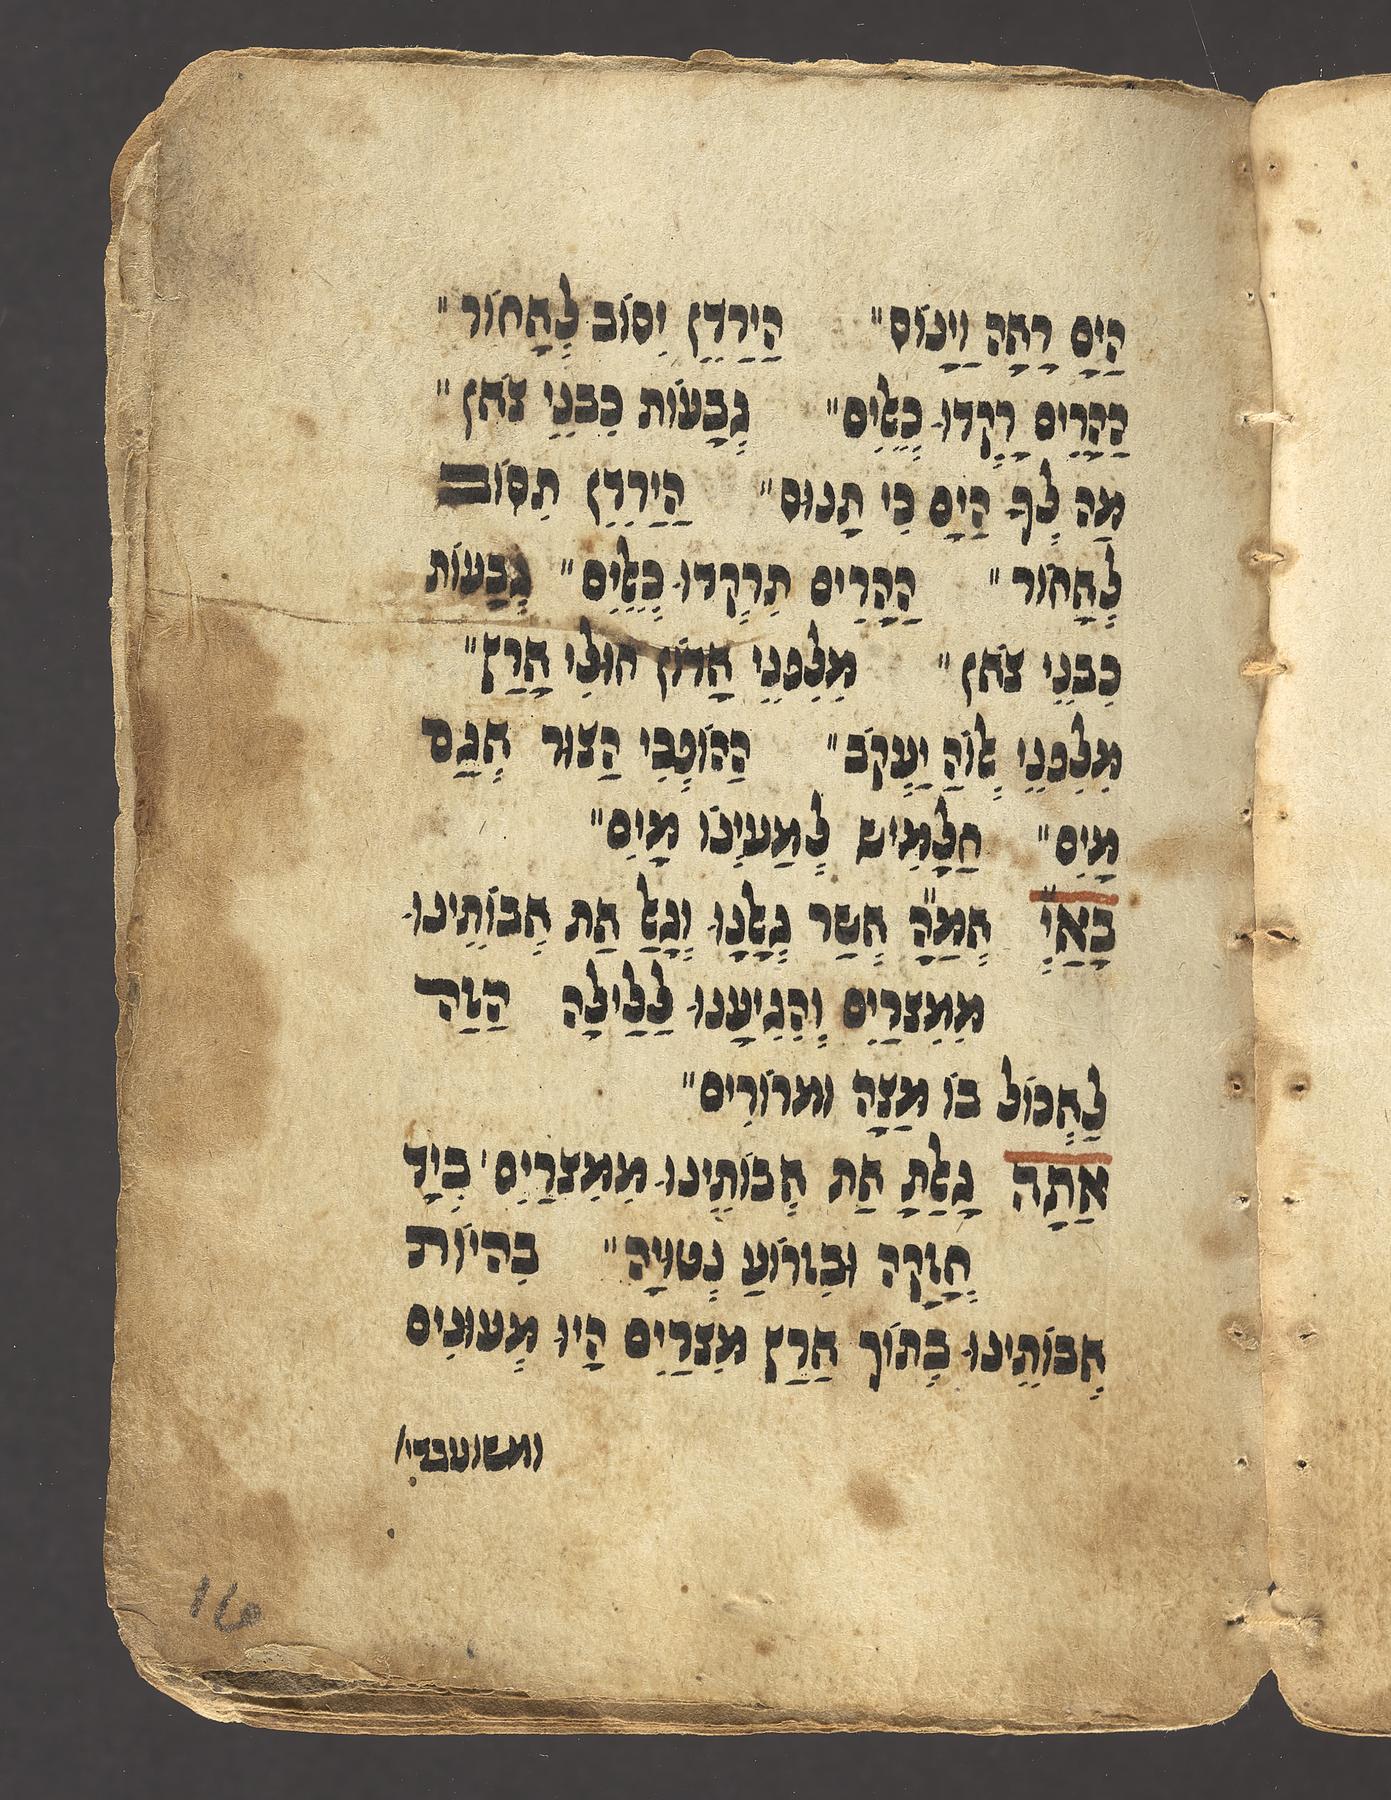 הַיָּם רָאָה וַיָּנוֹס" הַיַרְדֵן יִסּוֹב לְאָחוֹר"
הֶהָרִים רָקְדוּ כְאֵלִים" גְבָעוֹת כִּבְנֵי צֹאן"
מַה לְּךָ הַיָּם כִּי תָנוּס" הַיַרְדֵן תִּסּוֹב
לְאָחוֹר" הֶהָרִים תִּרְקְדוּ כְאֵלִים" גְבָעוֹת
כִּבְנֵי צֹאן" מִלִּפְנֵי אָדוֹן חוּלִי אָרֶץ"
מִלִּפְנֵי אֱלוֹהַּ יַעֲקֹב" הַהוֹפְכִי הַצוּר אֲגַם
מַיִם" חַלָּמִישׁ לְמַעְיְנוֹ מָיִם"
בָּאַ"יֳ אֱמֵ"הָ אֲשֶׁר גְּאָלָנוּ וְגָאַל אֶת אֲבוֹתֵינוּ
מִמִּצְרַיִם וְהִגִּיעָנוּ לַלַּיְלָה הַזֶּה
לֶאֱכוֹל בּוֹ מַצָּה וּמְרוֹרִים"
אַתָּה גָּאַלְתָּ אֶת אֲבוֹתֵינוּ מִמִּצְרַיִם' בְּיָד
חֲזָקָה וּבִזְרוֹעַ נְטוּיָה" בִּהְיוֹת
אֲבוֹתֵינוּ בְּתוֹךְ אֶרֶץ מִצְרַיִם הָיוּ מְעוּנִים
ומשועבדי/
16